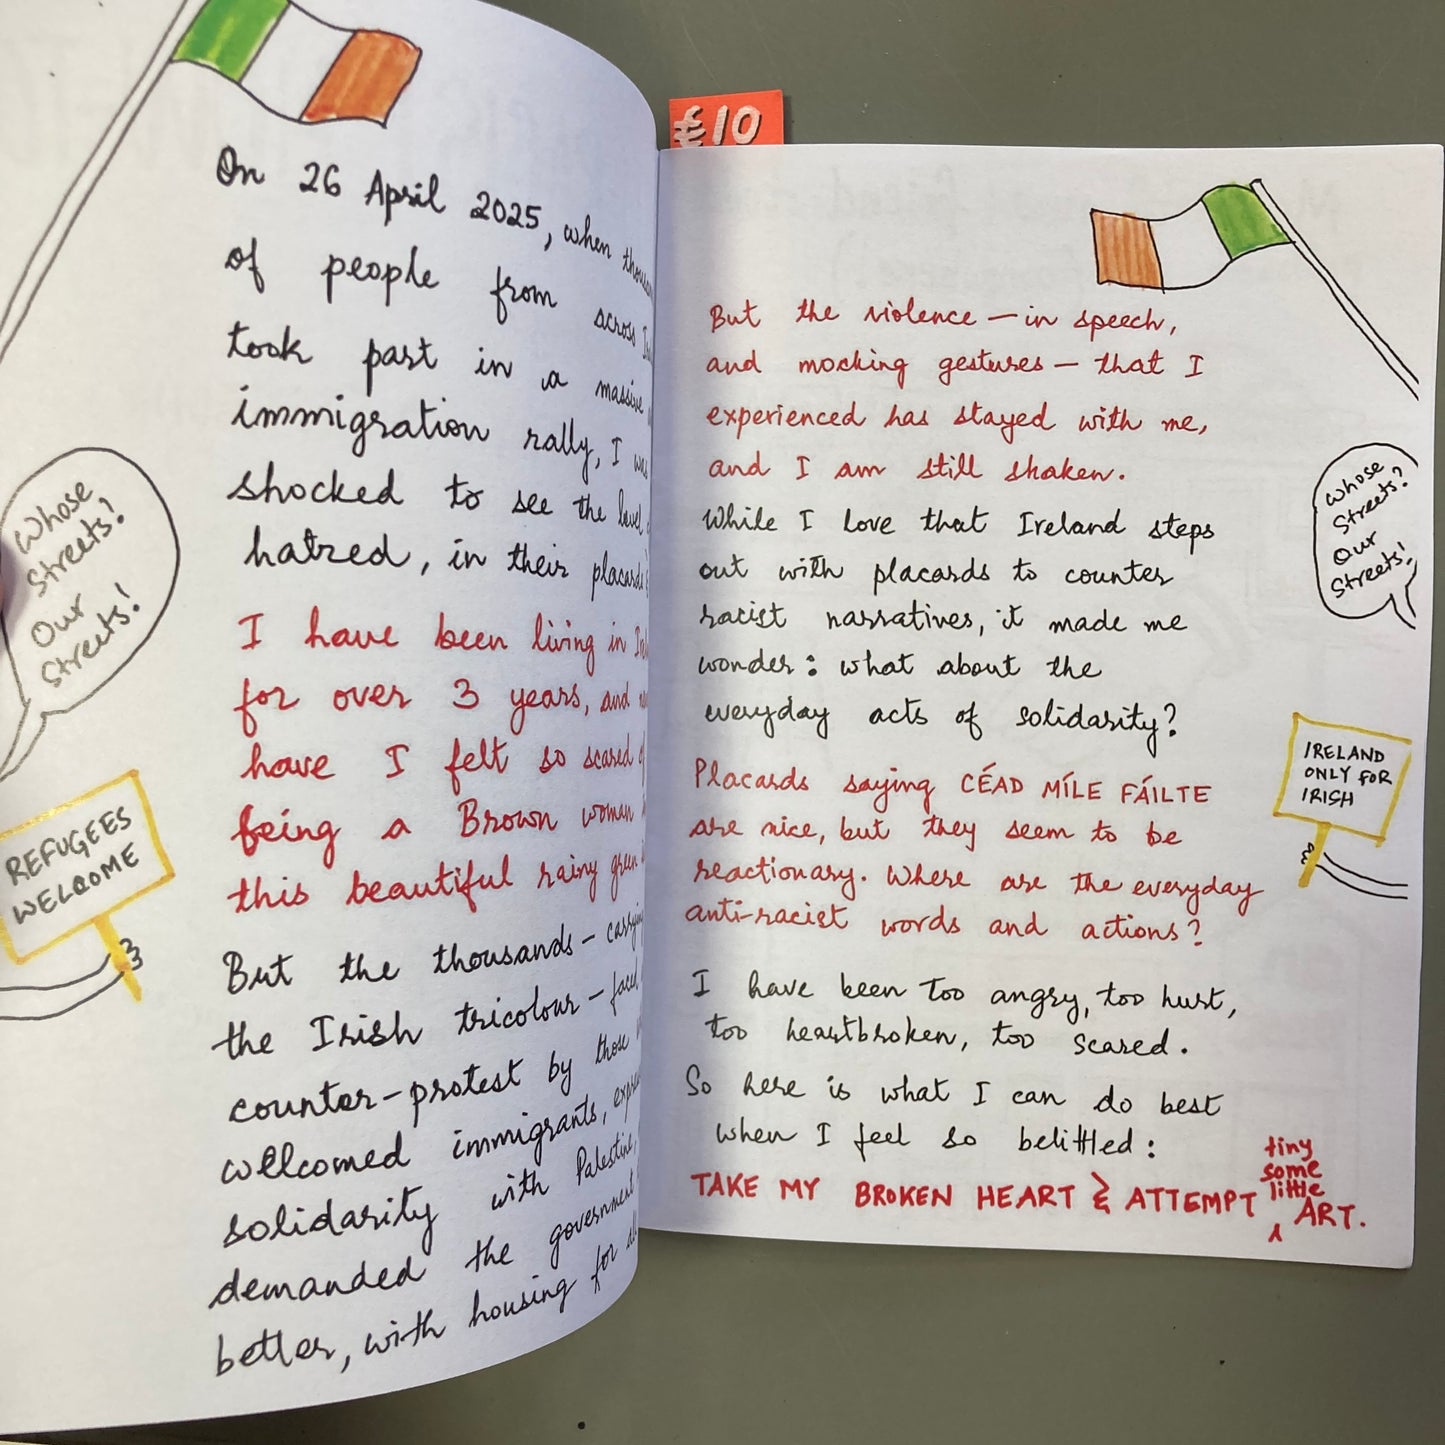 On 26 April 2025, when
of people from across
took part in a massive
immigration rally, I was
shocked to see the level
hatred, in their placards
I have been living in
for over 3 years, and
have I felt so scared of
being a Brown woman
this beautiful rainy green
But the thousands – carrying
the Irish tricolour – faced
counter-protest by those
wellcomed immigrants,
solidarity with Palestine,
demanded the government
better, with housing for
Whose
Streets!
Our
Streets!
REFUGEES
WELCOME
£10
But the violence – in speech,
and mocking gestures – that I
experienced has stayed with me,
and I am still shaken.
While I love that Ireland steps
out with placards to counter
racist narratives, it made me
wonder: what about the
everyday acts of solidarity?
Placards saying CÉAD MÍLE FÁILTE
are nice, but they seem to be
reactionary. Where are the everyday
anti-racist words and actions?
I have been too angry, too hurt,
too heartbroken, too scared.
So here is what I can do best
when I feel so belittled:
TAKE MY BROKEN HEART & ATTEMPT
tiny
some
little
ART.
Whose
Streets?
Our
Streets!
IRELAND
ONLY FOR
IRISH